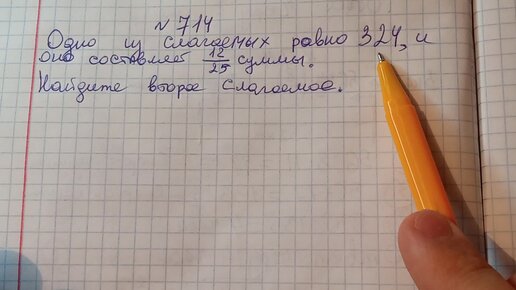 N 714
Одно из слагаемых равно 324, и
оно составляет 12/25 суммы.
Найдите второе слагаемое.